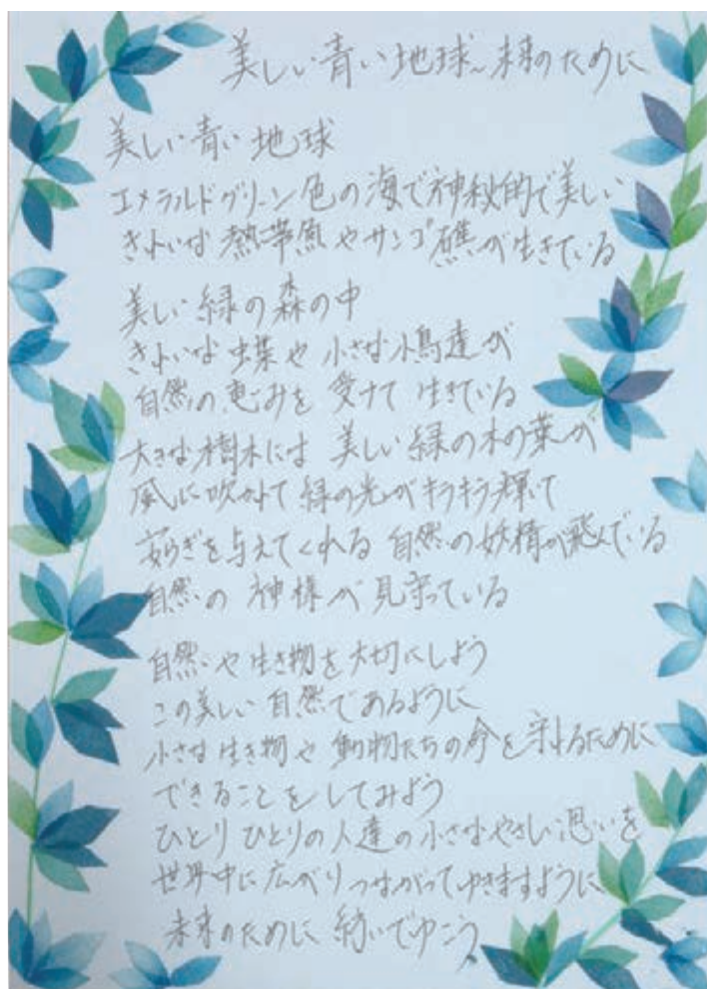 美しい青い地球~未来のために
美しい青い地球
エメラルドグリーン色の海で神秘的で美しい
きれいな熱帯魚やサンゴ礁が生きている
美しい緑の森の中
きれいな蝶や小さな小鳥達が
自然の恵みを受けて生きている
大きな樹木には美しい緑の木の葉が
風に吹かれて緑の光がキラキラ輝いて
安らぎを与えてくれる 自然の妖精が飛んでいる
自然の神様が見守っている
自然や生き物を大切にしよう
この美しい自然であるように
小さな生き物や動物たちの命を守れるために
できることをしてみよう
ひとりひとりの人達の小さなやさしい思いを
世界中に広がりつながってゆきますように
未来のために紡いでゆこう